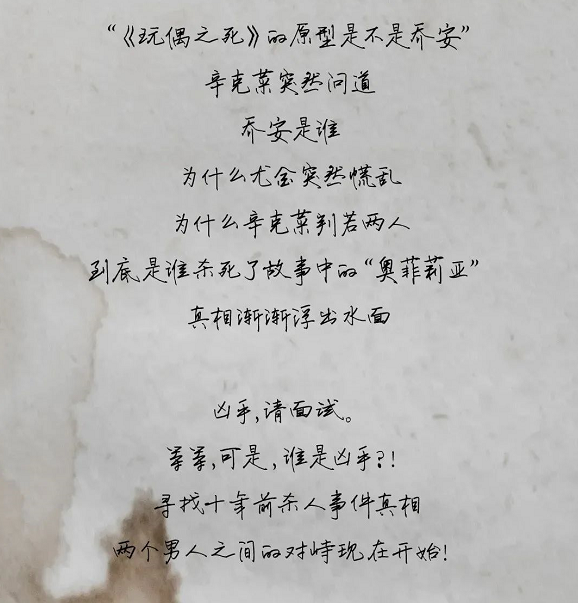 “《玩偶之死》的原型是不是乔安”
辛克莱突然问道
乔安是谁
为什么尤金突然慌乱
为什么辛克莱判若两人
到底是谁杀死了故事中的“奥菲莉亚”
真相渐渐浮出水面
凶手,请面试。
等等,可是,谁是凶手?!
寻找十年前杀人事件真相
两个男人之间的对峙现在开始!